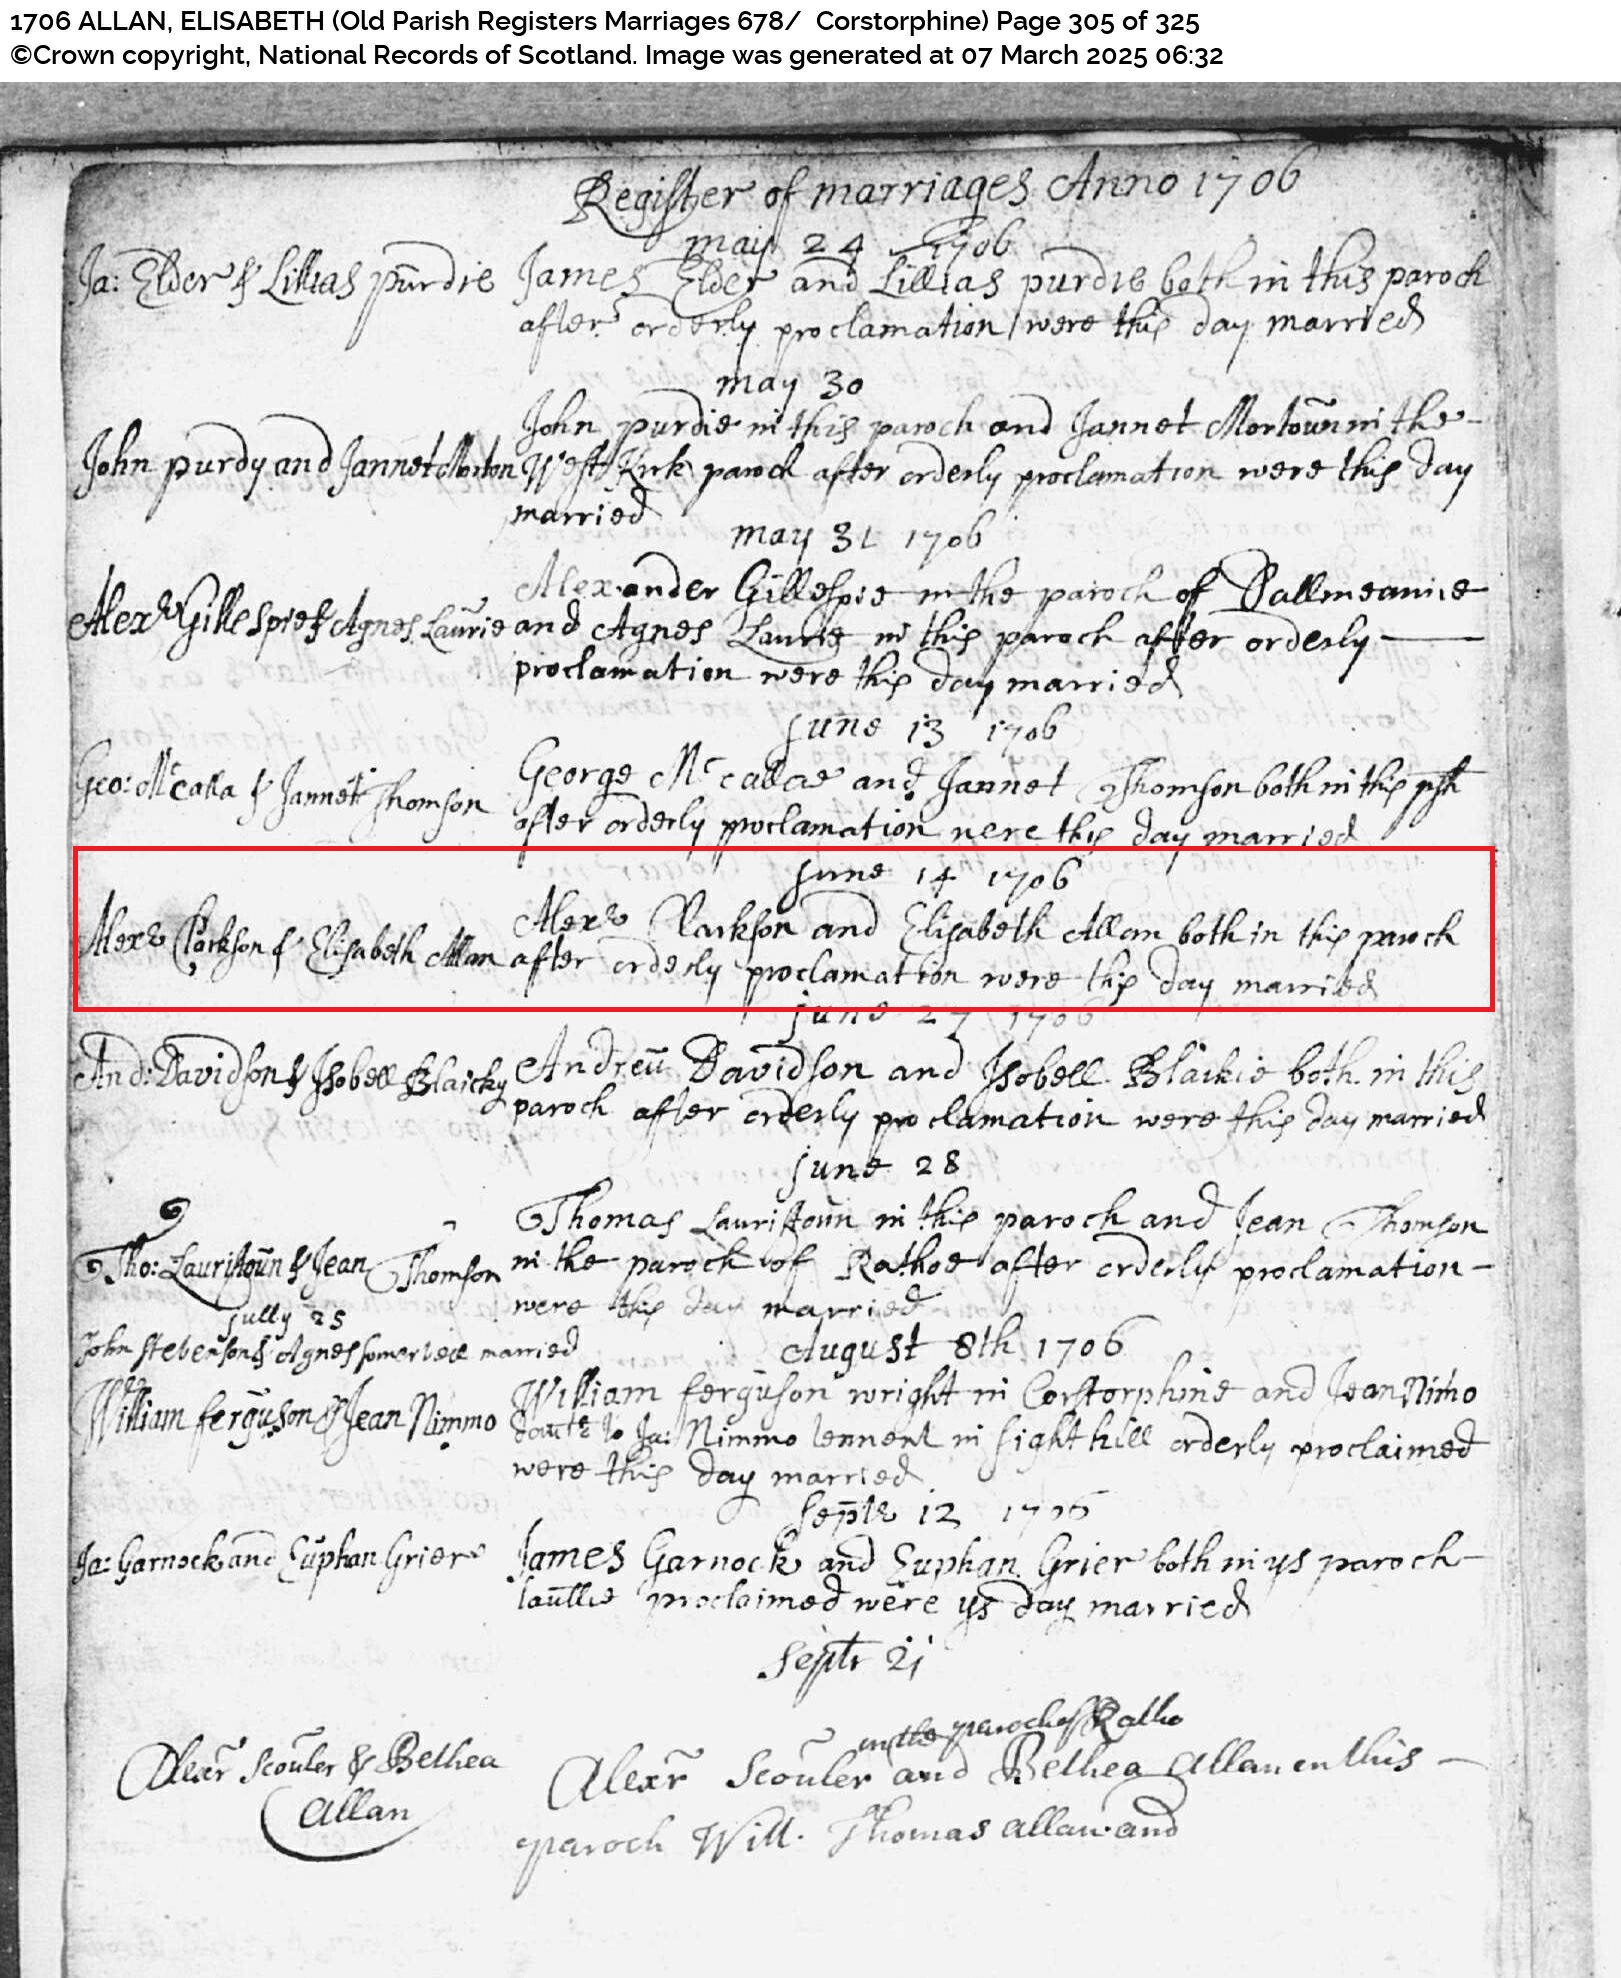 1706 ALLAN, ELISABETH (Old Parish Registers Marriages 678/ Corstorphine) Page 305 of 325
©Crown copyright, National Records of Scotland. Image was generated at 07 March 2025 06:32
Register of marriages Anno 1706
may 24 1706
Ja: Elder & Lillias purdie
James Elder and Lillias purdie both in this paroch
after orderly proclamation were this day married
may 30
John purdy and Jannet Morton
John purdie in this paroch and Jannet Mortoun in the
West Kirk paroch after orderly proclamation were this day
married
may 31 1706
Alexr Gillespie & Agnes Laurie
Alexander Gillespie in the paroch of Dallmeanie
and Agnes Laurie in this paroch after orderly
proclamation were this day married
June 13 1706
Geo: Mccalla & Jannet Thomson
George Mccallae and Jannet Thomson both in this psh
after orderly proclamation were this day married
June 14 1706
Alexr Clarkson & Elisabeth Allan
Alexr Clarkson and Elisabeth Allan both in this paroch
after orderly proclamation were this day married
june 27 1706
And: Davidson & Isobell Blaicky
Andreu Davidson and Isobell Blaikie both in this
paroch after orderly proclamation were this day married
june 28
Tho: Lauristoun & Jean Thomson
Thomas Lauristoun in this paroch and Jean Thomson
in the paroch of Rathoe after orderly proclamation
were this day married
jully 25
John stevenson & Agnes somervell married
August 8th 1706
William ferguson & Jean Nimmo
William ferguson wright in Corstorphine and Jean Nimo
dautr to Ja: Nimmo tennent in sighthill orderly proclaimed
were this day married
Septr 12 1706
Ja: Garnock and Euphan Grier
James Garnock and Euphan Grier both in ys paroch
laullie proclaimed were ys day married
Septr 21
Alexr Scouler & Bethea
Allan
in the paroch of Ratho
Alexr Scouler and Bethea Allan in this
paroch Will. Thomas allan and